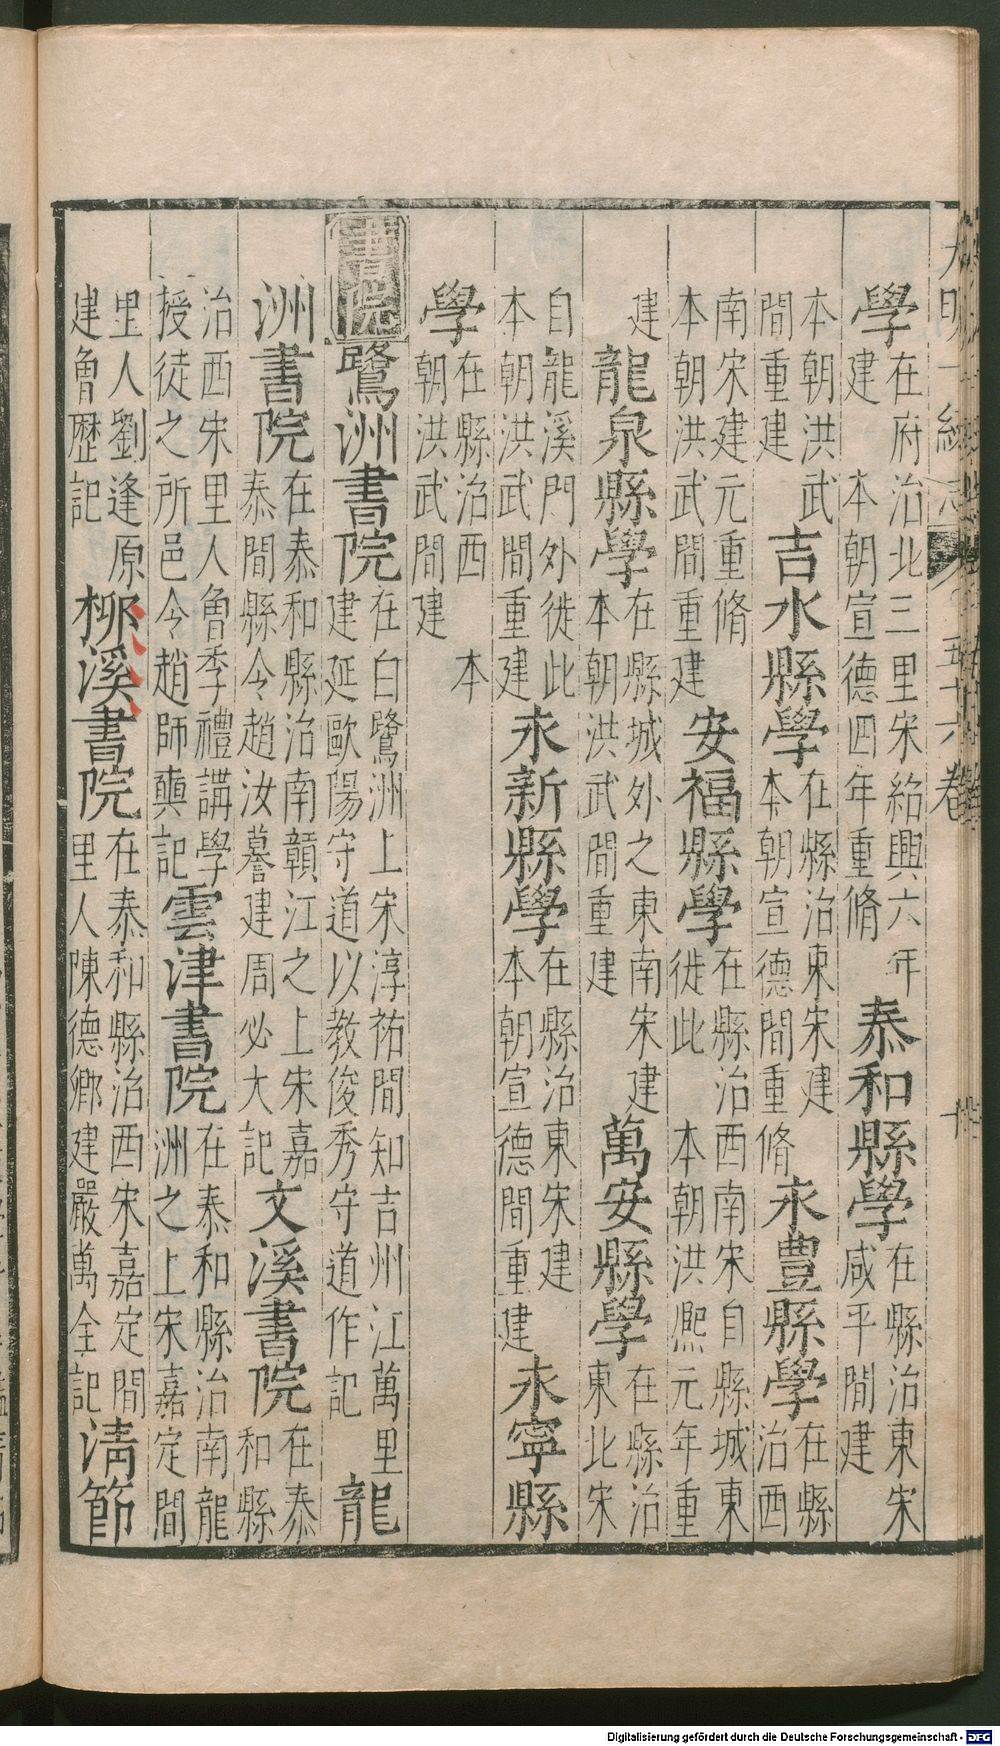 大明一統志 五十六卷 十
學在府治北三里宋紹興六年建 本朝宣德四年重脩泰和縣學在縣治東宋咸平間建
本朝洪武間重建吉水縣學在縣治東宋建本朝宣德間重脩永豐縣學在縣治西
南宋建元重脩本朝洪武間重建安福縣學在縣治西南宋自縣城東徙此 本朝洪熙元年重
建龍泉縣學在縣城外之東南宋建本朝洪武間重建萬安縣學在縣治東北宋
自龍溪門外徙此本朝洪武間重建永新縣學在縣治東宋建本朝宣德間重建永寧縣
學在縣治西 本朝洪武間建
書院鷺洲書院在白鷺洲上宋淳祐間知吉州江萬里建延歐陽守道以教俊秀守道作記龍
洲書院在泰和縣治南贛江之上宋嘉泰間縣令趙汝謩建周必大記文溪書院在泰和縣
治西宋里人魯季禮講學授徒之所邑令趙師記雲津書院在泰和縣治南龍洲之上宋嘉定間
里人劉逢原建魯歷記柳溪書院在泰和縣治西宋嘉定間里人陳德卿建嚴萬全記清節
Digitalisierung gefördert durch die Deutsche Forschungsgemeinschaft - DFG